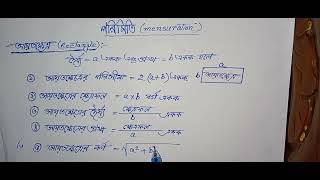 পরিমিতি (mensuration)
আয়তক্ষেত্র (Rectangle):
দৈর্ঘ্য = a একক এবং প্রস্থ = b একক হলে
a
আয়তক্ষেত্র
b
① আয়তক্ষেত্রের পরিসীমা = 2 (a+b) একক
② আয়তক্ষেত্রের ক্ষেত্রফল = a x b বর্গ একক
③ আয়তক্ষেত্রের দৈর্ঘ্য = ক্ষেত্রফল / b একক
আয়তক্ষেত্রের প্রস্থ = ক্ষেত্রফল / a একক
আয়তক্ষেত্রের কর্ণ = √a²+b